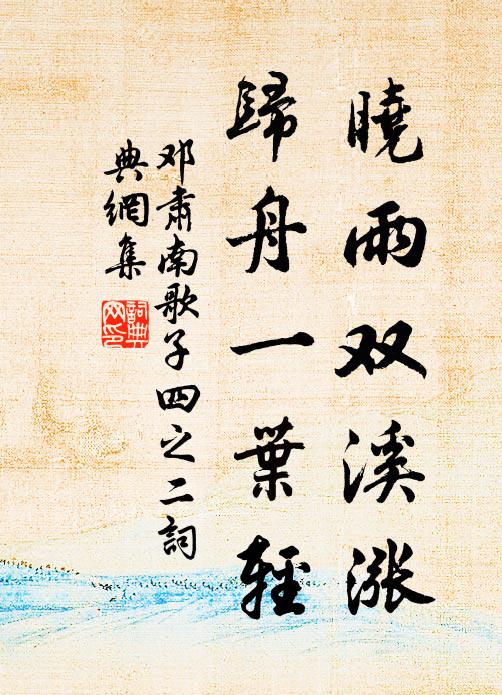 曉雨双溪漲
歸舟一葉輕
邓肅南歌子四之二詞
典網集
詞典网印